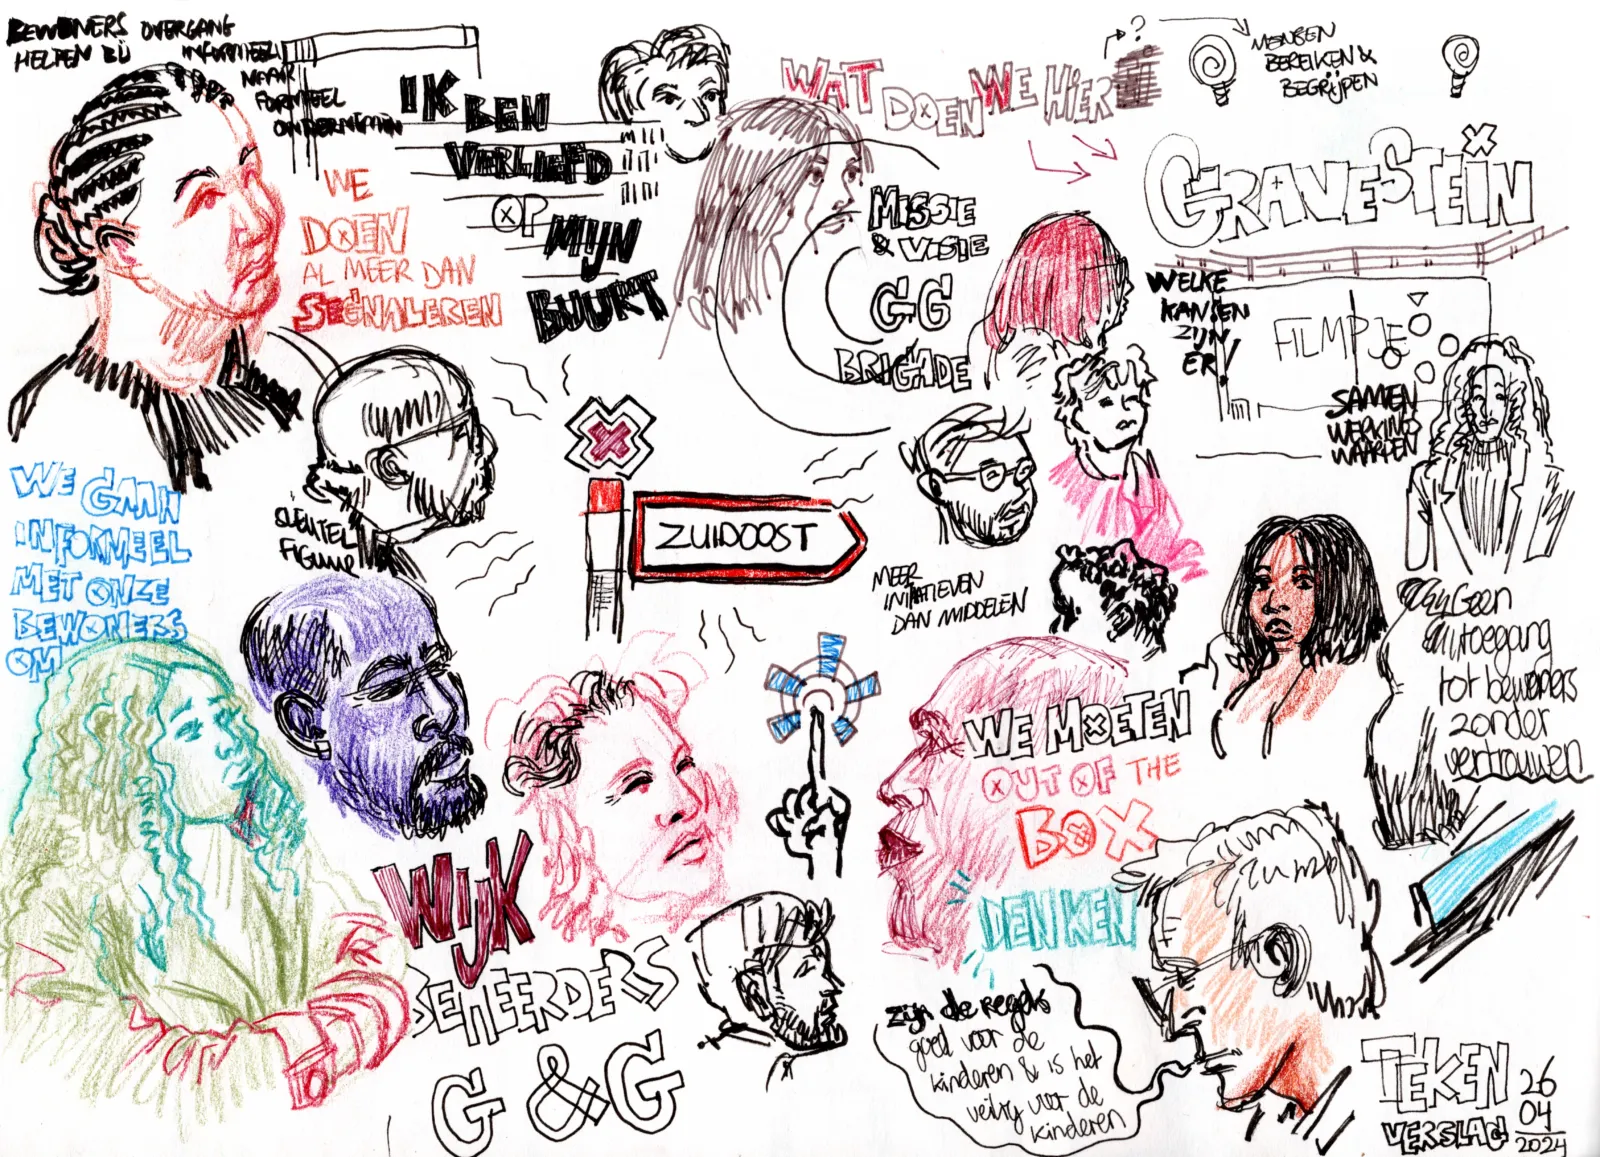 BEWONERS OVERGANG
HELPEN BIJ INFORMEEL
NAAR
FORMEEL
ONDERNEMEN
IK BEN
VERLIEFD
OP MIJN
BUURT
WE
DOEN
AL MEER DAN
SEGNALEREN
WAT DOEN WE HIER
?
MENSEN
BEREIKEN &
BEGRIJPEN
GRAVESTEIN
MISSIE
& VISIE
GG
BRIGADE
WELKE
KANSEN
ZIJN
ER!
FILMPJE
SAMEN
WERKING
WAARDEN
WE GAAN
INFORMEEL
MET ONZE
BEWONERS
OM
SLEUTEL
FIGUUR
ZUIDOOST
MEER
INITIATIEVEN
DAN MIDDELEN
Geen
toegang
tot bewoners
zonder
vertrouwen
WE MOETEN
OUT OF THE
BOX
DENKEN
WIJK
BEHEERDERS
G & G
zijn de regels
goed voor de
kinderen & is het
veilig voor de
kinderen
TEKEN
VERSLAG
26
04
2024